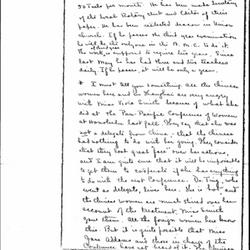 30 Taels per month. He has been made Secretary
of the local Rotary club and Editor of their
paper. He has been rejected deacon in Union
church. If he passes the third year examination
he will be the only one in the M.C. to do it.
the work is supposed to require five years. Since
last May he has had three and two teachers
daily. If he passes, it will be only a year.
I must tell you something else. The Chinese
women here and in Shanghai are very angry
with Miss Viola Smith because of what she
did at the Pan-Pacific Conference of Women
at Honolulu last fall. They say that she was
not a delegate from China - that the Chinese
had nothing to do with her going. They consider
that they lost great "face" over her actions,
and I am quite sure that it will be impossible
to get them to cooperate if she has anything
to do with the next Conference. Dr. Ting, who
went as delegate, lives here. She is hot and
the Chinese women are much stirred over her
account of the treatment Miss Smith
gave them. All the foreign women here know
this. But it is quite possible that Miss
Jane Addams and those in charge of the
Conference have not heard of it. The Chinese